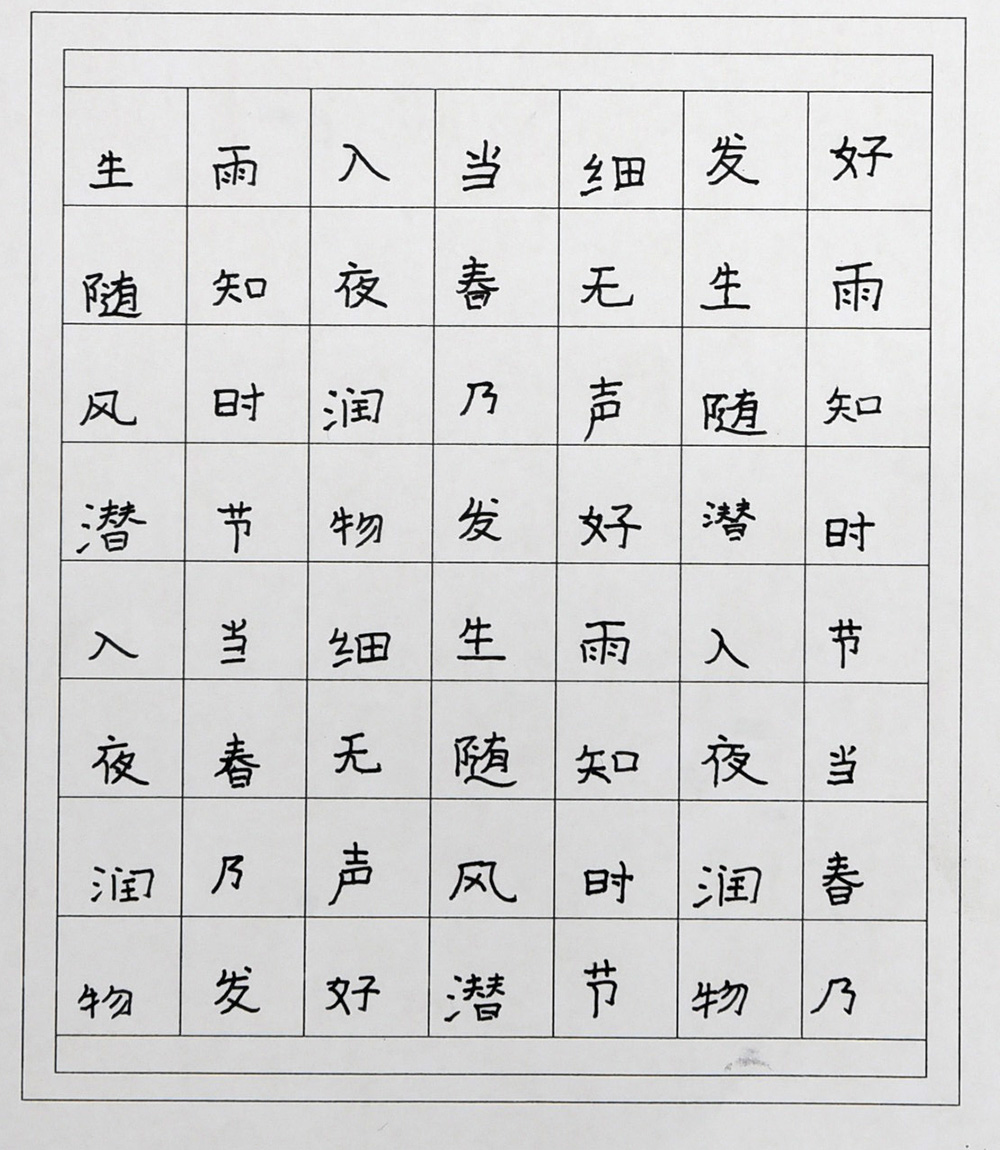 好雨知时节当春乃
发生随潜入夜润物
细无声好雨知时节
当春乃发生随风潜
入夜润物细无声好
雨知时节当春乃发
生随风潜入夜润物